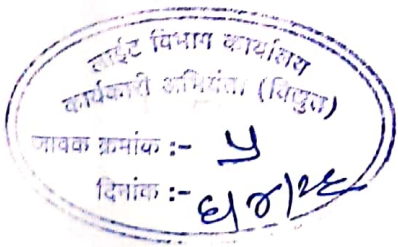 लाईट विभाग कार्यालय
कार्यकारी अभियंता (विद्युत)
जावक क्रमांक :- ५
दिनांक :- ६/४/२६